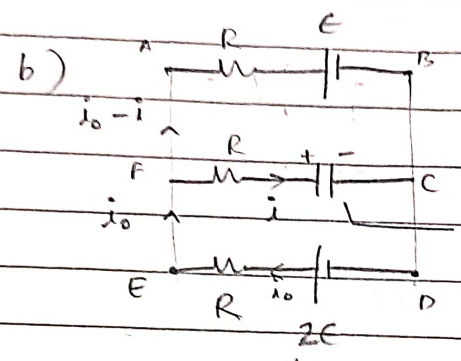 b)
A R E B
i₀ - i
F R + - C
i₀ i
E R i₀ D
2E